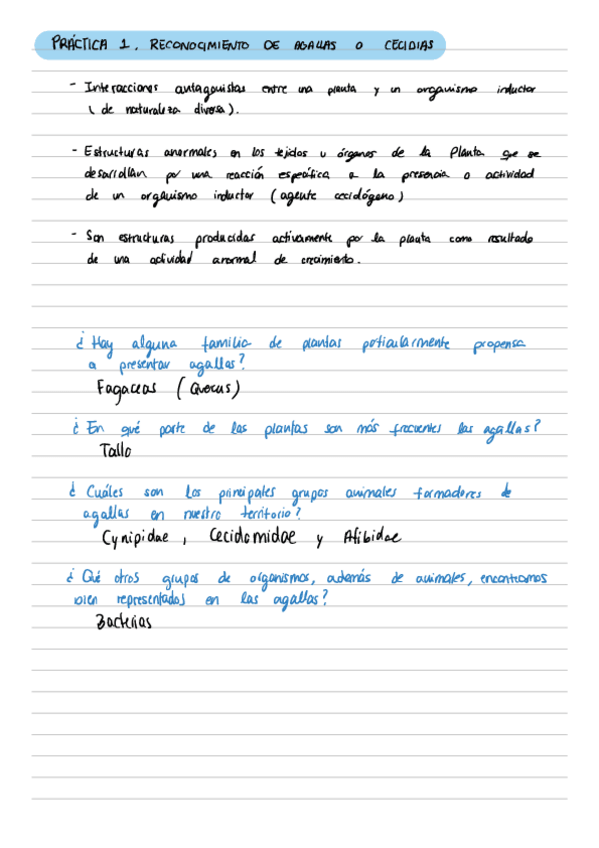 PRÁCTICA 1. RECONOCIMIENTO DE AGALLAS O CECIDIAS
- Interacciones antagonistas entre una planta y un organismo inductor
( de naturaleza diversa).
- Estructuras anormales en los tejidos u órganos de la Planta que se
desarrollan por una reacción específica a la presencia o actividad
de un organismo inductor (agente cecidógeno)
- Son estructuras producidas activamente por la planta como resultado
de una actividad anormal de crecimiento.
¿Hay alguna familia de plantas particularmente propensa
a presentar agallas?
Fagaceas (Quercus)
¿En qué parte de las plantas son más frecuentes las agallas?
Tallo
¿Cuáles son los principales grupos animales formadores de
agallas en nuestro territorio?
Cynipidae, Cecidomidae y Afibidae
¿Qué otros grupos de organismos, además de animales, encontramos
bien representados en las agallas?
Bacterias